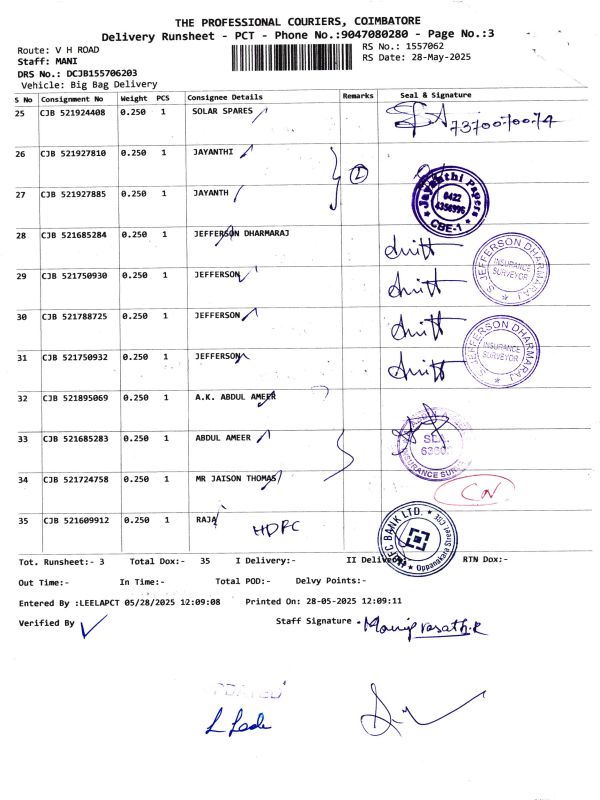 THE PROFESSIONAL COURIERS, COIMBATORE
Delivery Runsheet - PCT - Phone No.:9047080280 - Page No.:3
Route: V H ROAD
RS No.: 1557062
Staff: MANI
RS Date: 28-May-2025
DRS No.: DCJB155706203
Vehicle: Big Bag Delivery
S No Consignment No Weight PCS Consignee Details Remarks Seal & Signature
25 CJB 521924408 0.250 1 SOLAR SPARES
26 CJB 521927810 0.250 1 JAYANTHI
27 CJB 521927885 0.250 1 JAYANTH
Jayanthi Papers
0422
4356996
CBE-1
28 CJB 521685284 0.250 1 JEFFERSON DHARMARAJ
29 CJB 521750930 0.250 1 JEFFERSON
S. JEFFERSON DHARMARAJ
INSURANCE
SURVEYOR
30 CJB 521788725 0.250 1 JEFFERSON
31 CJB 521750932 0.250 1 JEFFERSON
S. JEFFERSON DHARMARAJ
INSURANCE
SURVEYOR
32 CJB 521895069 0.250 1 A.K. ABDUL AMEER
33 CJB 521685283 0.250 1 ABDUL AMEER
34 CJB 521724758 0.250 1 MR JAISON THOMAS
CN
35 CJB 521609912 0.250 1 RAJA
HDFC
HDFC BANK LTD.
Oppanakara Street CBE
Tot. Runsheet:- 3 Total Dox:- 35 I Delivery:- II Delivery:- RTN Dox:-
Out Time:- In Time:- Total POD:- Delvy Points:-
Entered By :LEELAPCT 05/28/2025 12:09:08 Printed On: 28-05-2025 12:09:11
Verified By
Staff Signature
UPDATED